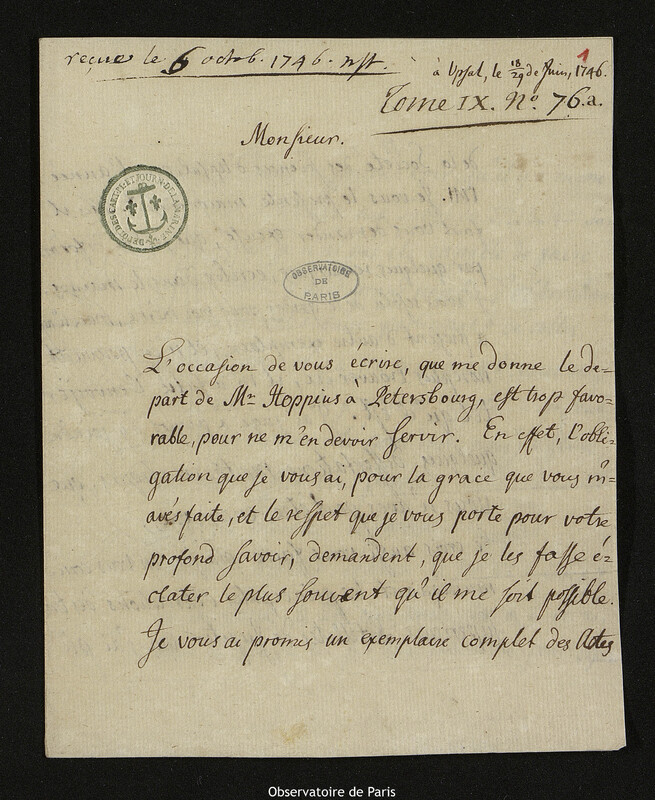 reçue le 6 octob. 1746. nst.
à Upsal, le 18/29 de Juin, 1746.
1
Tome IX. No. 76.a.
Monsieur.
DEP. DES CARTES ET JOURN. DE LA MARINE
OBSERVATOIRE
DE
PARIS
L'occasion de vous écrire, que me donne le de-
part de Mr Hoppius à Petersbourg, est trop favo-
rable, pour ne m'en devoir servir. En effet, l'obli-
gation que je vous ai, pour la grace que vous m'-
avés faite, et le respet que je vous porte pour votre
profond savoir, demandent, que je les fasse é-
clater le plus souvent qu'il me soit possible.
Je vous ai promis un exemplaire complet des Actes
Observatoire de Paris